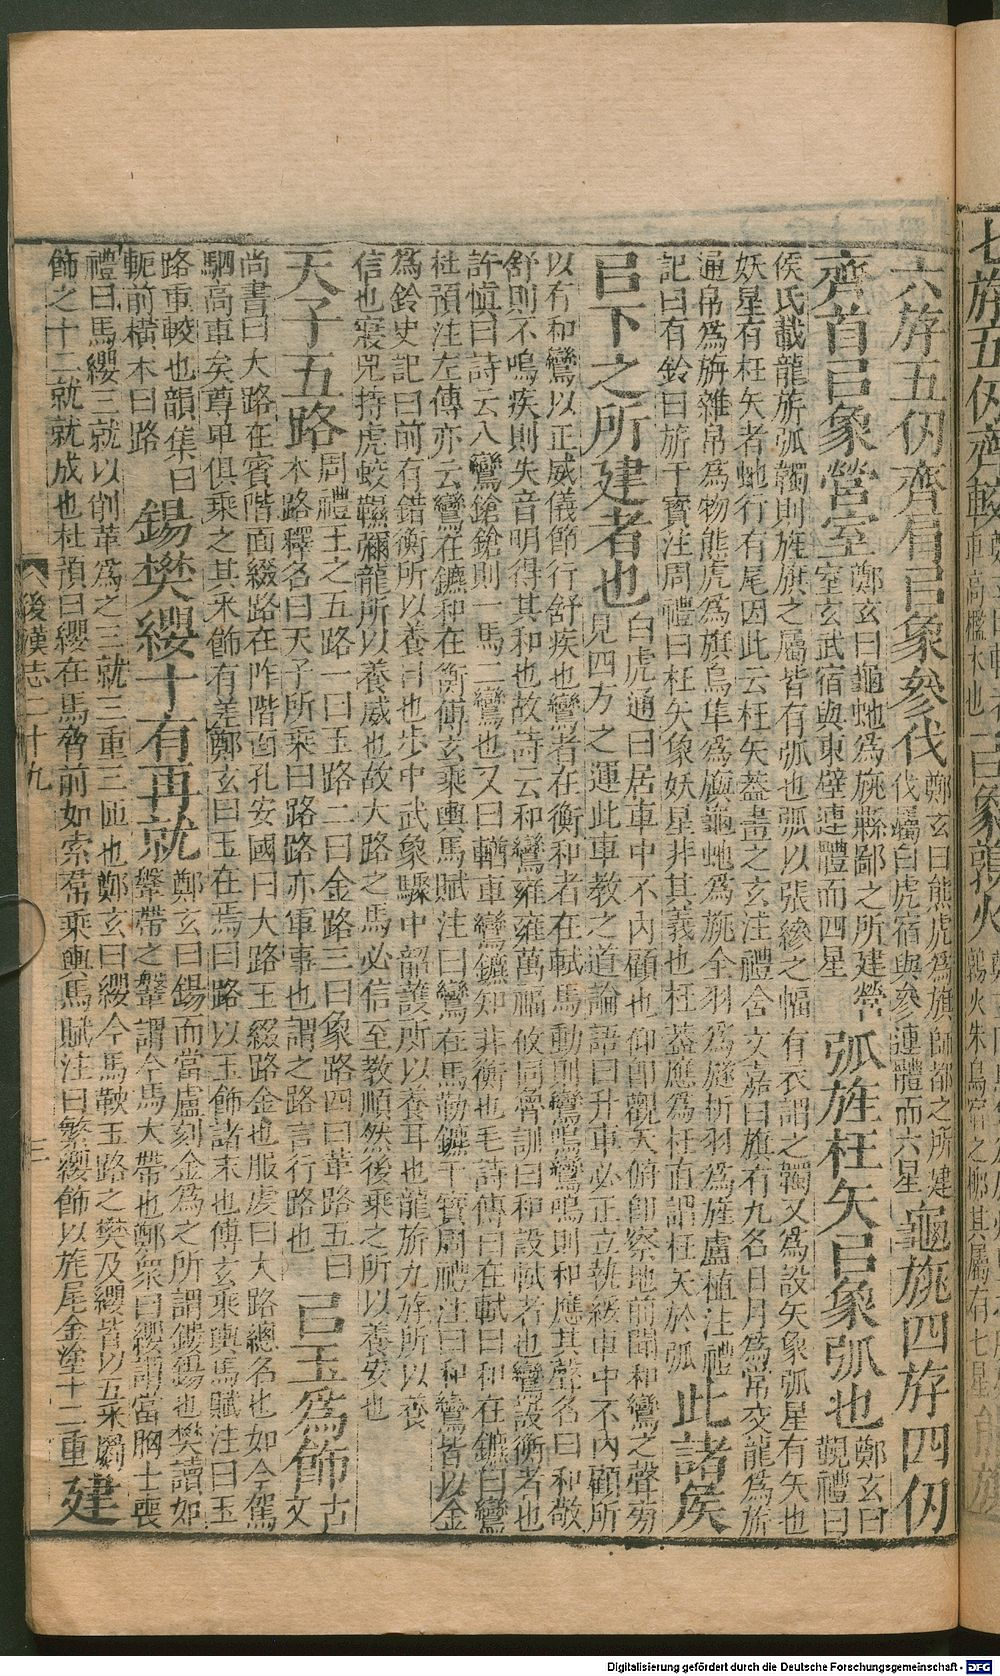 六斿五仞齊肩㠯象參伐
鄭玄曰熊虎爲旗師都之所建
伐屬白虎宿與參連體而六星
龜旐四斿四仞
齊首㠯象營室
鄭玄曰龜虵爲旐縣鄙之所建營
室玄武宿與東壁連體而四星
弧旌枉矢㠯象弧也
鄭玄曰
覲禮曰
侯氏載龍旂弧韣則旌旗之屬皆有弧也弧以張縿之幅有衣謂之韣又爲設矢象弧星有矢也
妖星有枉矢者虵行有尾因此云枉矢蓋畫之玄注禮含文嘉曰旗有九名日月爲常交龍爲旂
通帛爲旃雜帛爲物熊虎爲旗鳥隼爲旟龜虵爲旐全羽爲旞析羽爲旌盧植注禮
記曰有鈴曰旂干寶注周禮曰枉矢象妖星非其義也枉蓋應爲枉直謂枉矢於弧
此諸侯
㠯下之所建者也
白虎通曰居車中不內顧也仰卽觀天俯卽察地前聞和鸞之聲旁
見四方之運此車教之道論語曰升車必正立執綏車中不內顧所
以有和鸞以正威儀節行舒疾也鸞者在衡和者在軾馬動則鸞鳴鸞鳴則和應其聲名曰和敬
舒則不鳴疾則失音明得其和也故詩云和鸞雍雍萬福攸同魯訓曰和設軾者也鸞設衡者也
許愼曰詩云八鸞鎗鎗則一馬二鸞也又曰輶車鸞鑣知非衡也毛詩傳曰在軾曰和在鑣曰鸞
杜預注左傳亦云鸞在鑣和在衡傅玄乘輿馬賦注曰鸞在馬勒鑣干寶周禮注曰和鸞皆以金
爲鈴史記曰前有錯衡所以養目也步中武象驟中韶護所以養耳也龍旂九斿所以養
信也寢兕持虎鮫韅彌龍所以養威也故大路之馬必信至教順然後乘之所以養安也
天子五路
周禮王之五路一曰玉路二曰金路三曰象路四曰革路五曰
木路釋名曰天子所乘曰路路亦軍事也謂之路言行路也
㠯玉爲飾
古
文
尚書曰大路在賓階面綴路在阼階面孔安國曰大路玉綴路金也服虔曰大路總名也如今駕
駟高車矣尊卑俱乘之其采飾有差鄭玄曰玉在焉曰路以玉飾諸末也傅玄乘輿馬賦注曰玉
路重較也韻集曰
軛前橫木曰路
錫樊纓十有再就
鄭玄曰錫面當盧刻金爲之所謂鏤錫也樊讀如
鞶帶之鞶謂今馬大帶也鄭衆曰纓謂當胸士喪
禮曰馬纓三就以削革爲之三就三重三匝也鄭玄曰纓今馬鞅玉路之樊及纓皆以五采罽
飾之十二就就成也杜預曰纓在馬膺前如索帬乘輿馬賦注曰繁纓飾以旄尾金塗十二重
建
後漢志二十九
三
七斿五仞齊較
㠯象鶉火
鶉火朱鳥宿之柳其屬有七星